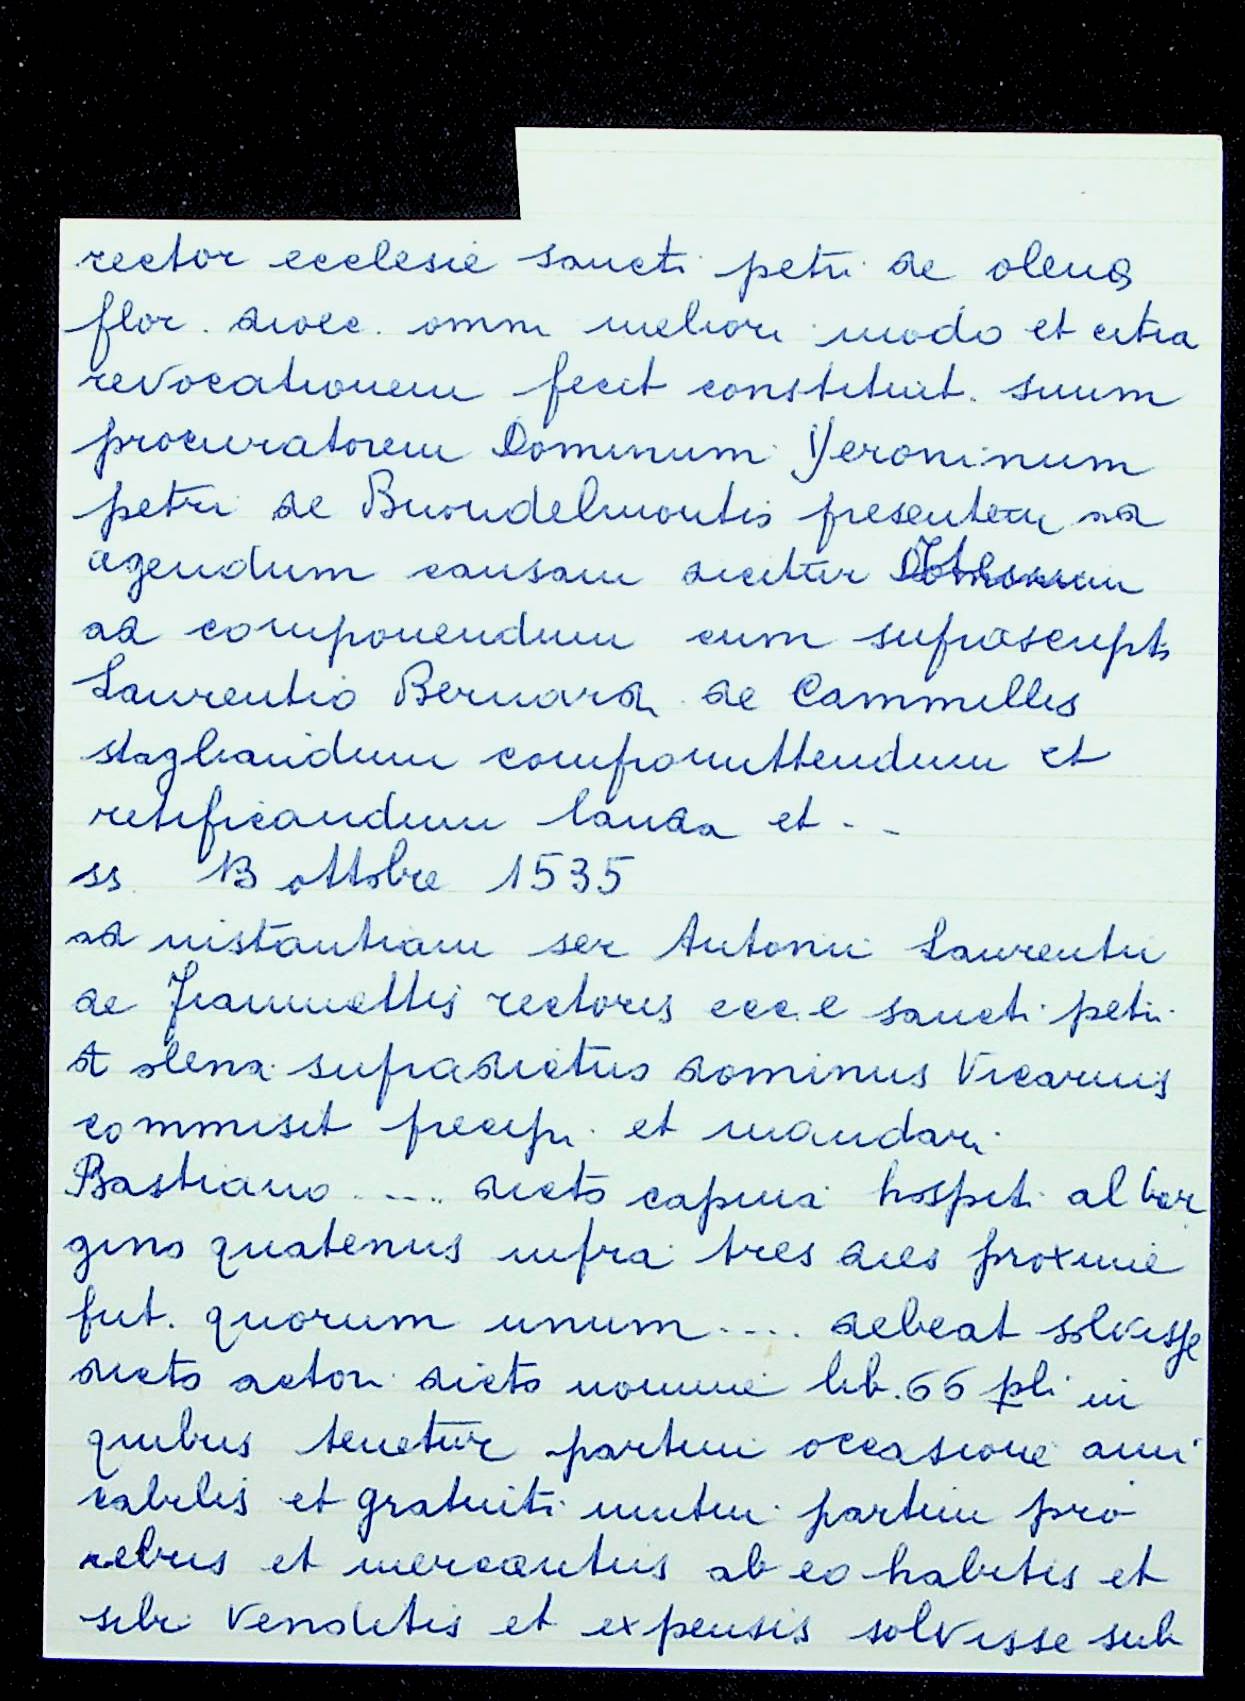 rector ecclesie sancti petri de olena
flor. dioec. omni meliori modo et citra
revocationem fecit constituit. suum
procuratorem Dominum Yeroninum
petri de Buondelmontis presentem ad
agendum causam dicitur
ad componendum cum suprascripto
Laurentio Bernardi de Cammillis
stagliandum compromittendum et
ratificandum lauda et . . .
ss. 13 ottobre 1535
ad instantiam ser Antonii Laurentii
de Jiannettis rectoris ecc.e sancti petri
d olena supradictus dominus Vicarius
commisit precipi et mandari
Bastiano .... dicto capina hospiti al bor
gino quatenus infra tres dies proxime
fut. quorum unum .... debeat solvisse
dicto actori dicto nomine lib. 66 pli in
quibus tenetur partim occasione ami
cabilis et gratuiti mutui partim pro
rebus et mercantiis ab eo habitis et
sibi venditis et expensis solvisse sub